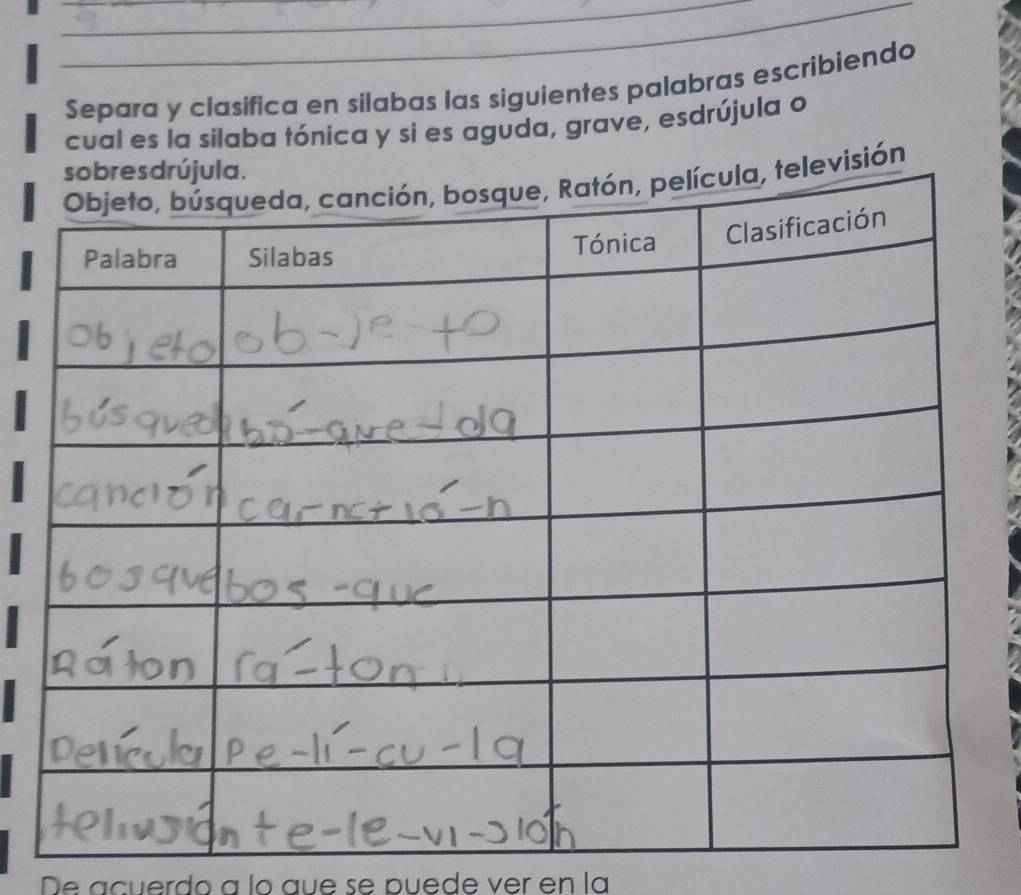 Separa y clasifica en silabas las siguientes palabras escribiendo
cual es la silaba tónica y si es aguda, grave, esdrújula o
sobresdrújula.
Objeto, búsqueda, canción, bosque, Ratón, película, televisión
Palabra Silabas Tónica Clasificación
objeto ob-je-to
búsqueda bú-que-da
canción ca-nc-ió-n
bosque bos-que
Ráton rá-ton
Película pe-lí-cu-la
telivsión te-le-vi-sión
De acuerdo a lo que se puede ver en la